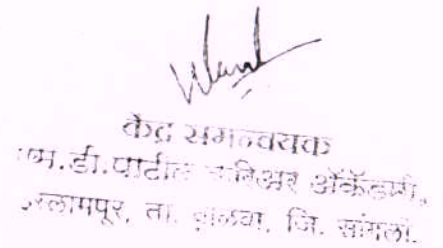 केंद्र समन्वयक
एम.डी.पाटील करिअर ॲकॅडमी,
इस्लामपूर, ता. वाळवा, जि. सांगली.